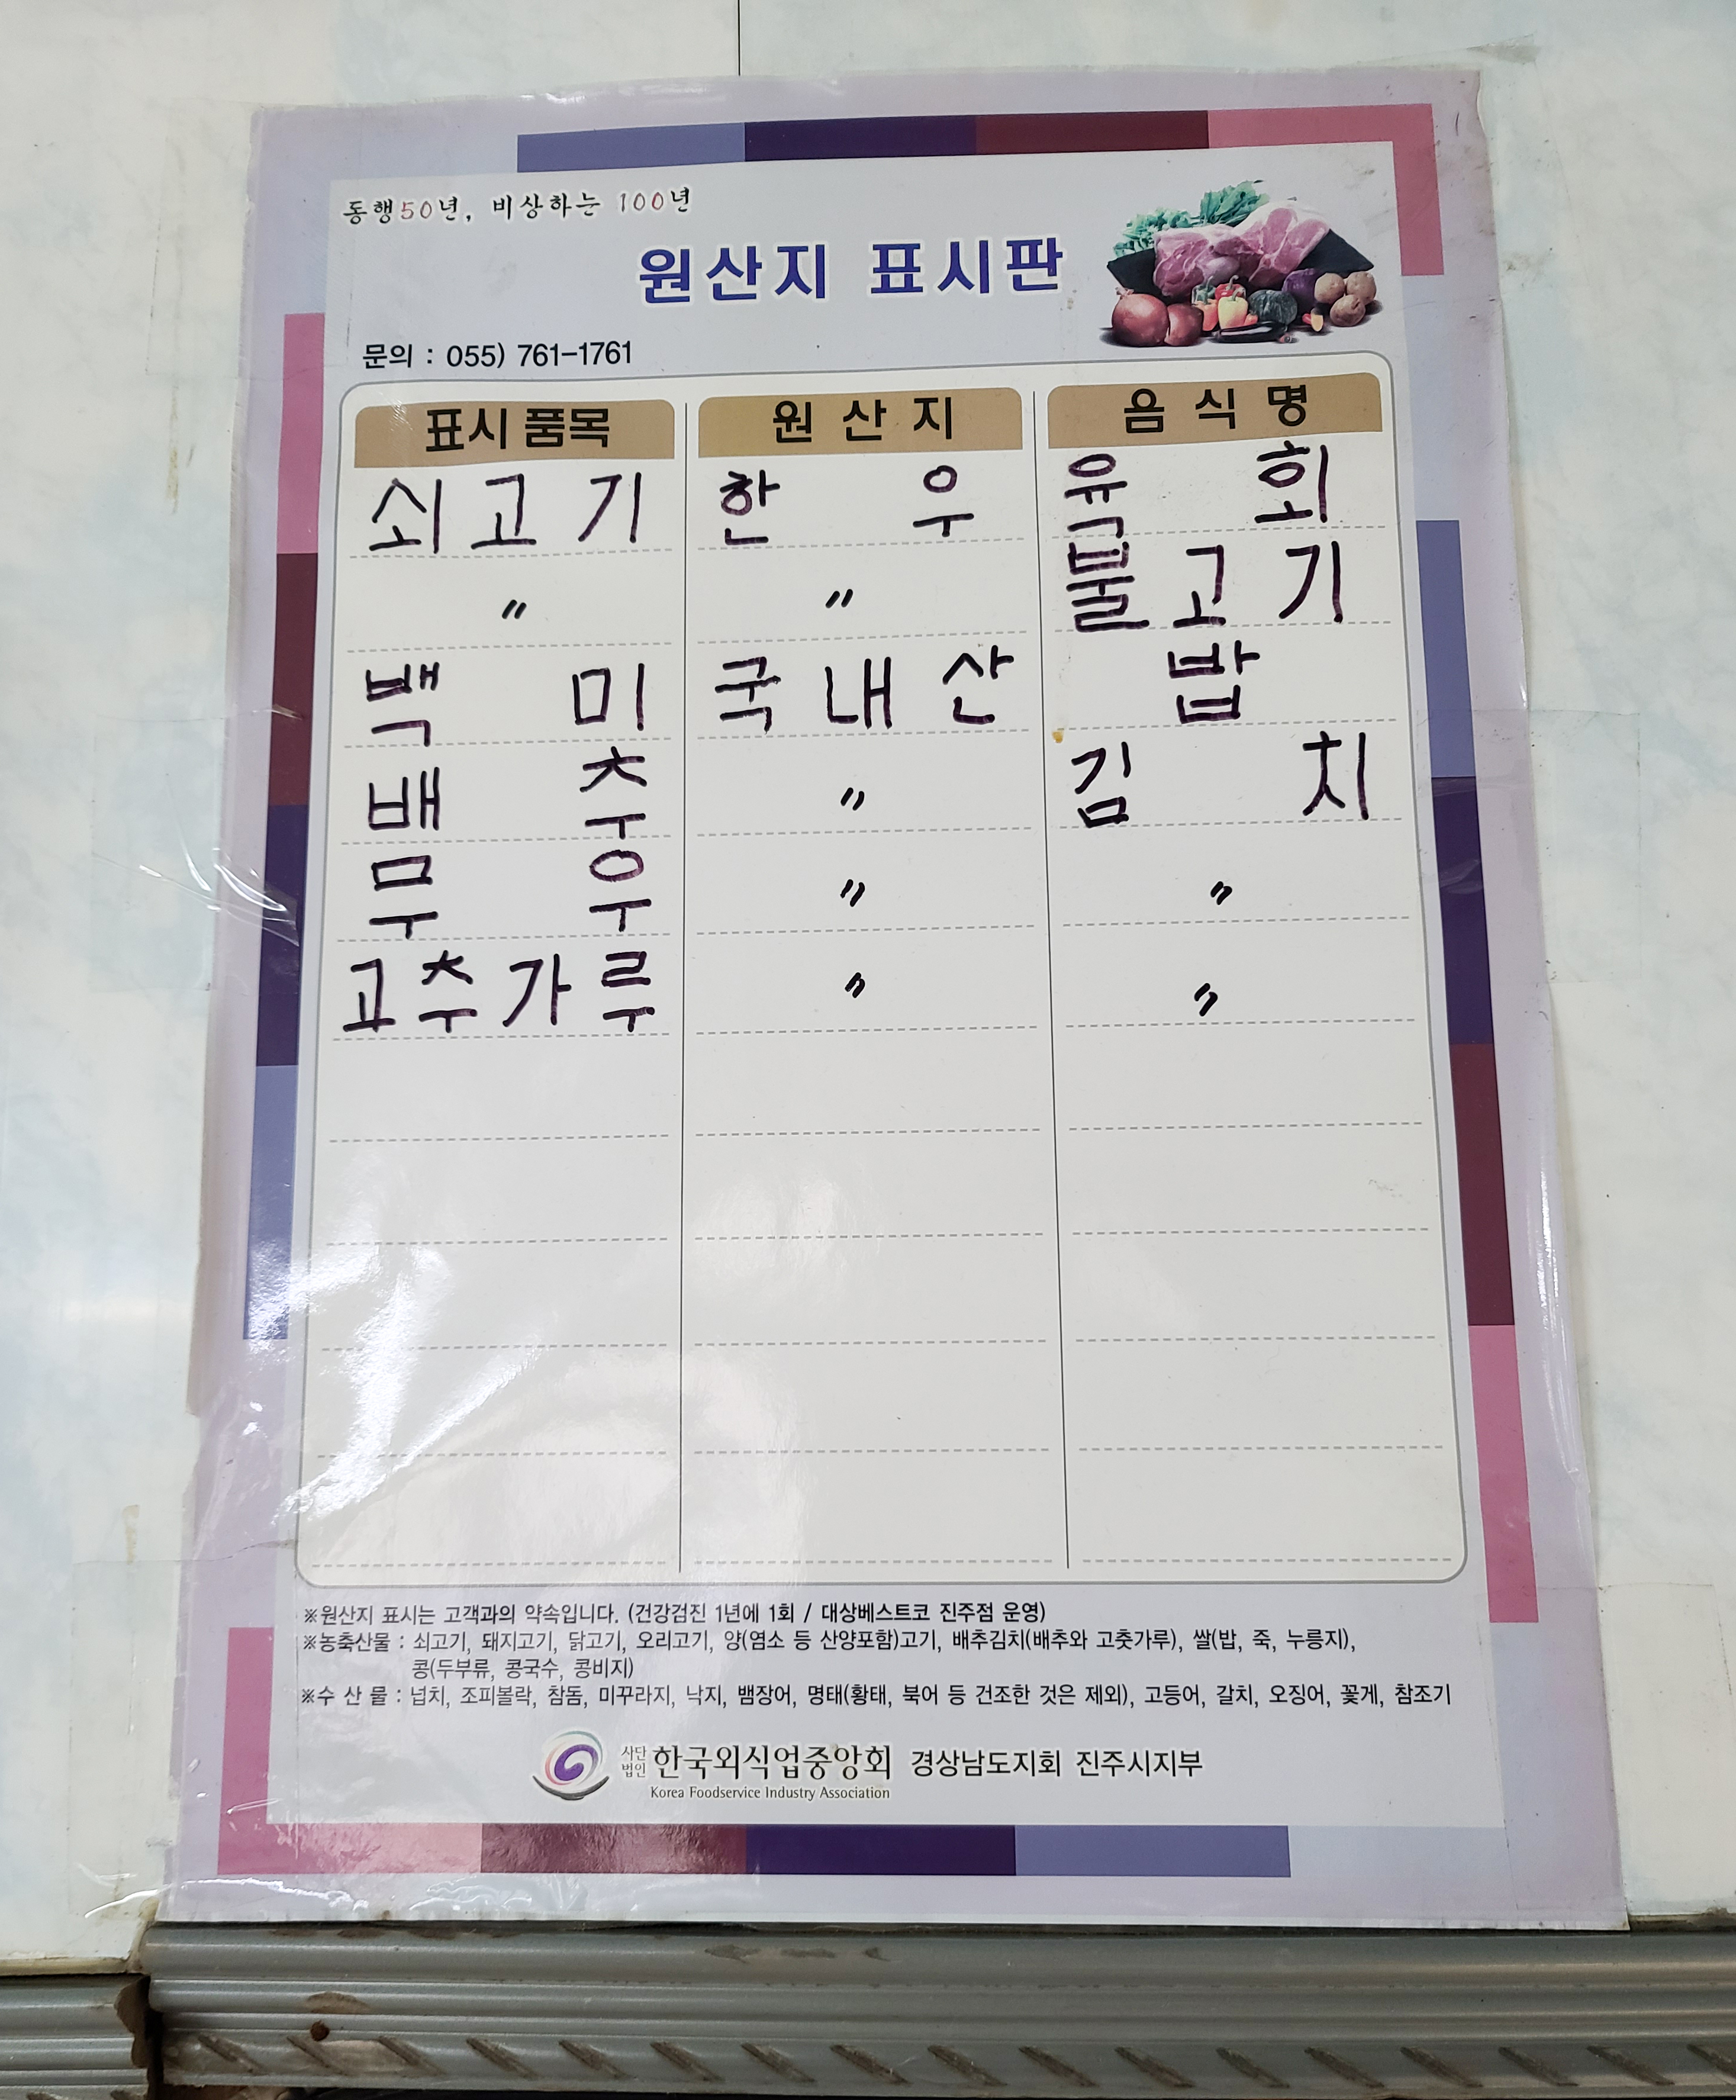 동행50년, 비상하는 100년
원산지 표시판
문의 : 055) 761-1761
표시품목 원산지 음식명
쇠고기 한우 육회
〃 〃 불고기
백미 국내산 밥
배추 〃 김치
무우 〃 〃
고추가루 〃 〃
※원산지 표시는 고객과의 약속입니다. (건강검진 1년에 1회 / 대상베스트코 진주점 운영)
※농축산물 : 쇠고기, 돼지고기, 닭고기, 오리고기, 양(염소 등 산양포함)고기, 배추김치(배추와 고춧가루), 쌀(밥, 죽, 누릉지),
콩(두부류, 콩국수, 콩비지)
※수 산 물 : 넙치, 조피볼락, 참돔, 미꾸라지, 낙지, 뱀장어, 명태(황태, 북어 등 건조한 것은 제외), 고등어, 갈치, 오징어, 꽃게, 참조기
사단법인 한국외식업중앙회 경상남도지회 진주시지부
Korea Foodservice Industry Association